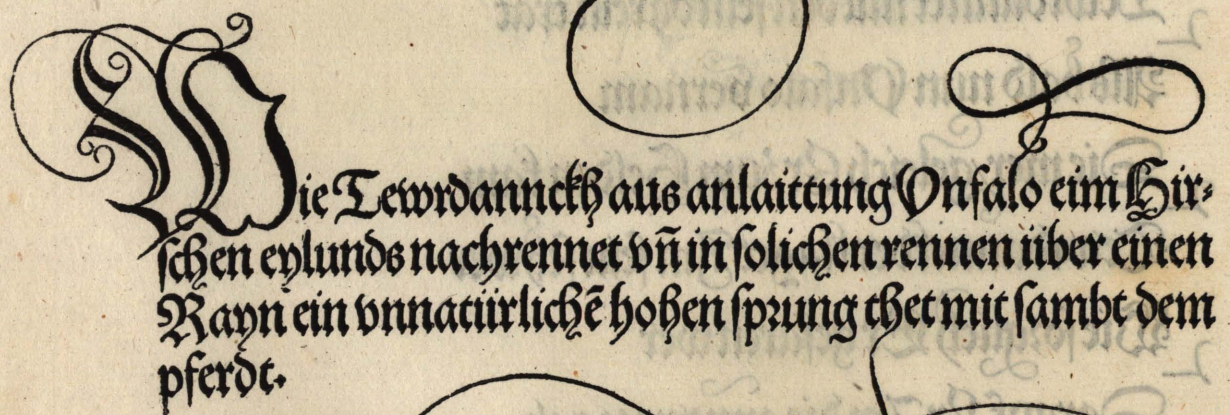 Wie Tewrdannckh aus anlaittung Vnfalo eim Hir⸗
ſchen eylunds nachrennet vn̄ in ſolichen rennen über einen
Rayn ein vnnatürlichē hohen ſprung thet mit ſambt dem
pferdt.